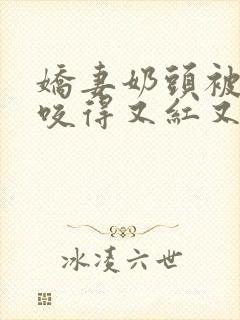 嬌妻奶頭被
咬得又紅又
冰凌六世